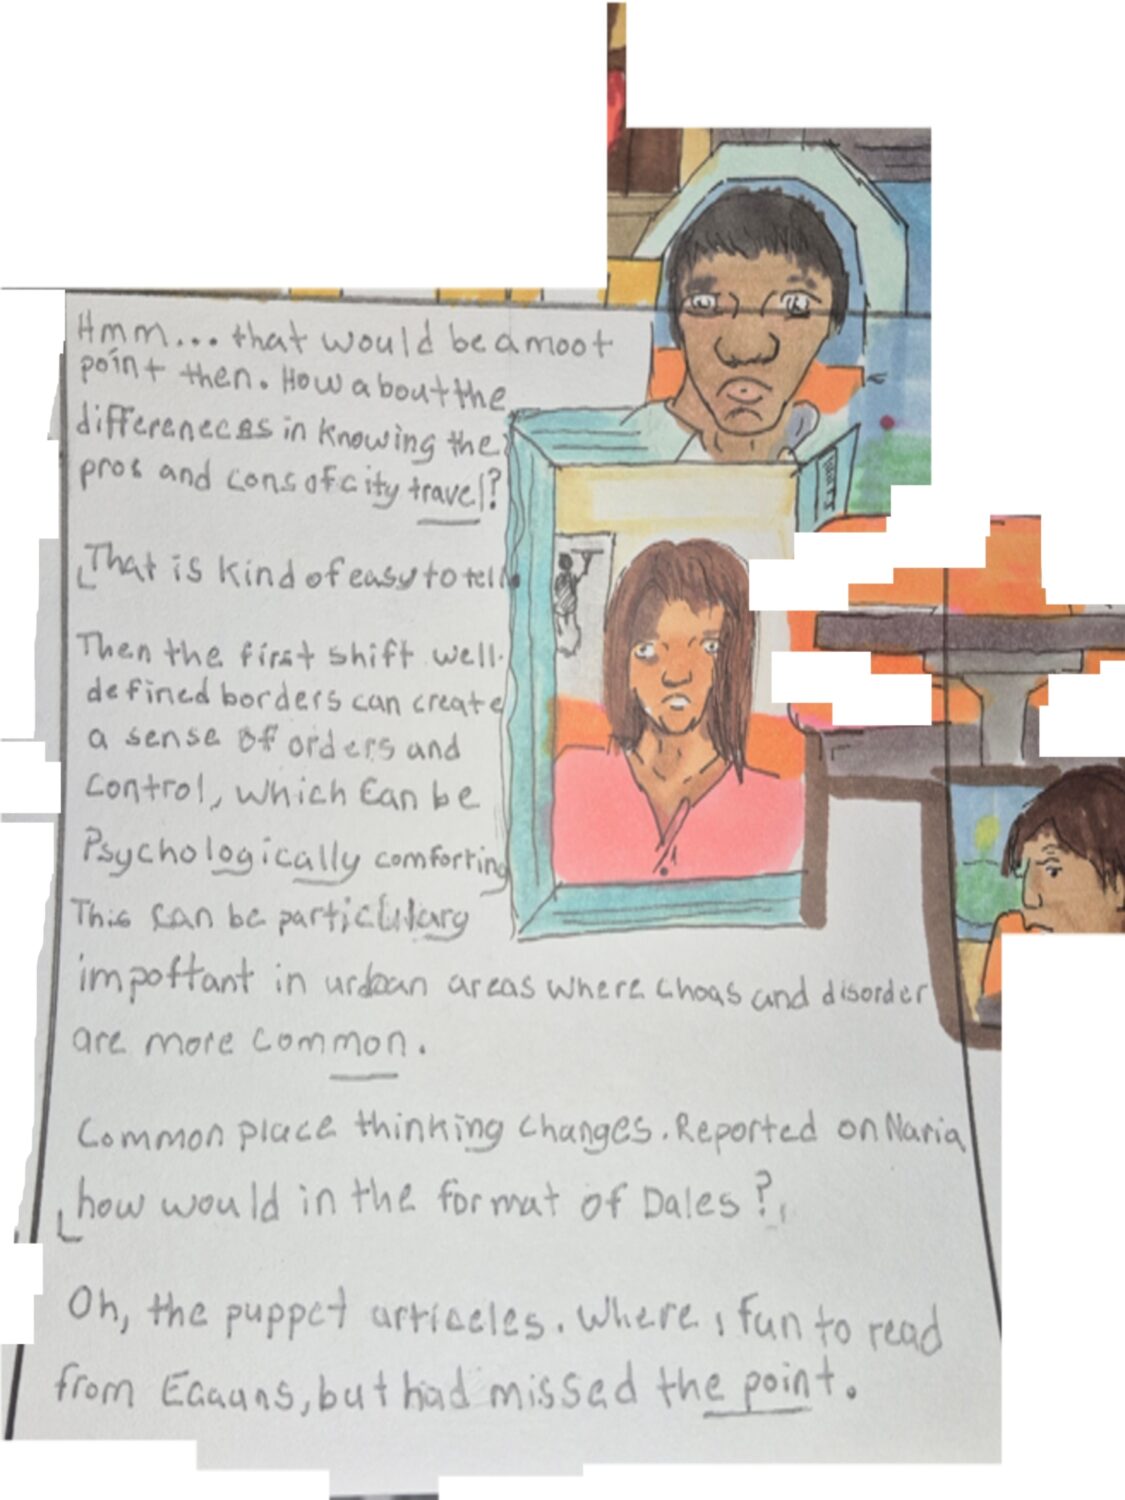 Hmm... that would be a moot
point then. How about the
differeneces in knowing the
pros and cons of city travel?
That is kind of easy to tell
Then the first shift well-
defined borders can create
a sense of orders and
control, which can be
Psychologically comforting
This can be particulary
impoftant in urban areas where choas and disorder
are more common.
Common place thinking changes. Reported on Naria
how would in the format of Dales?
Oh, the puppet articeles. Where, fun to read
from but had missed the point.